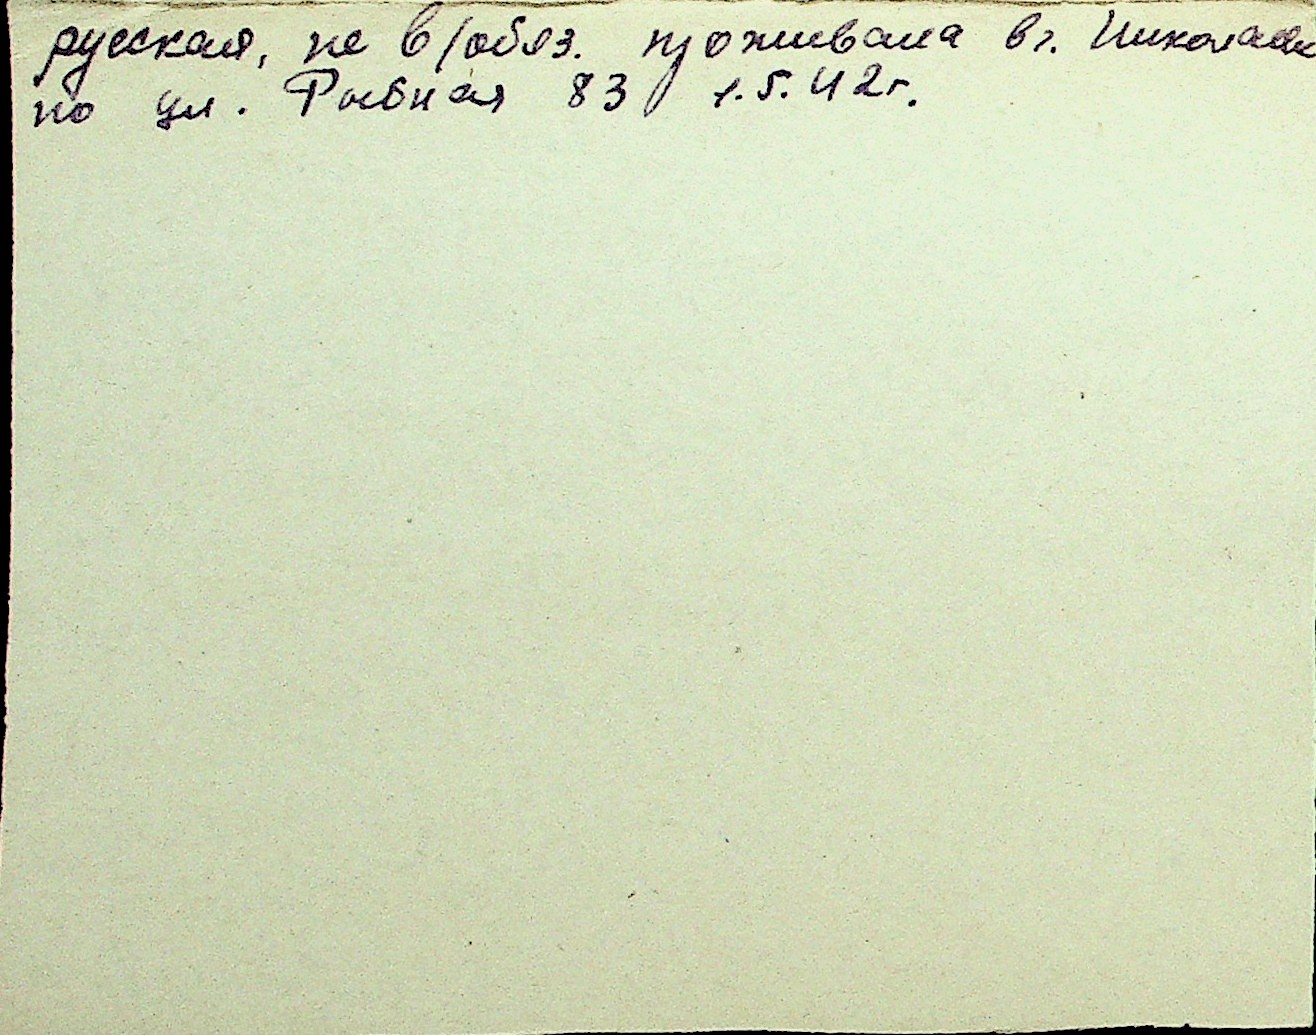 русская, не в/обяз. проживала в г. Николаев
по ул. Рыбная 83 1.5.42г.